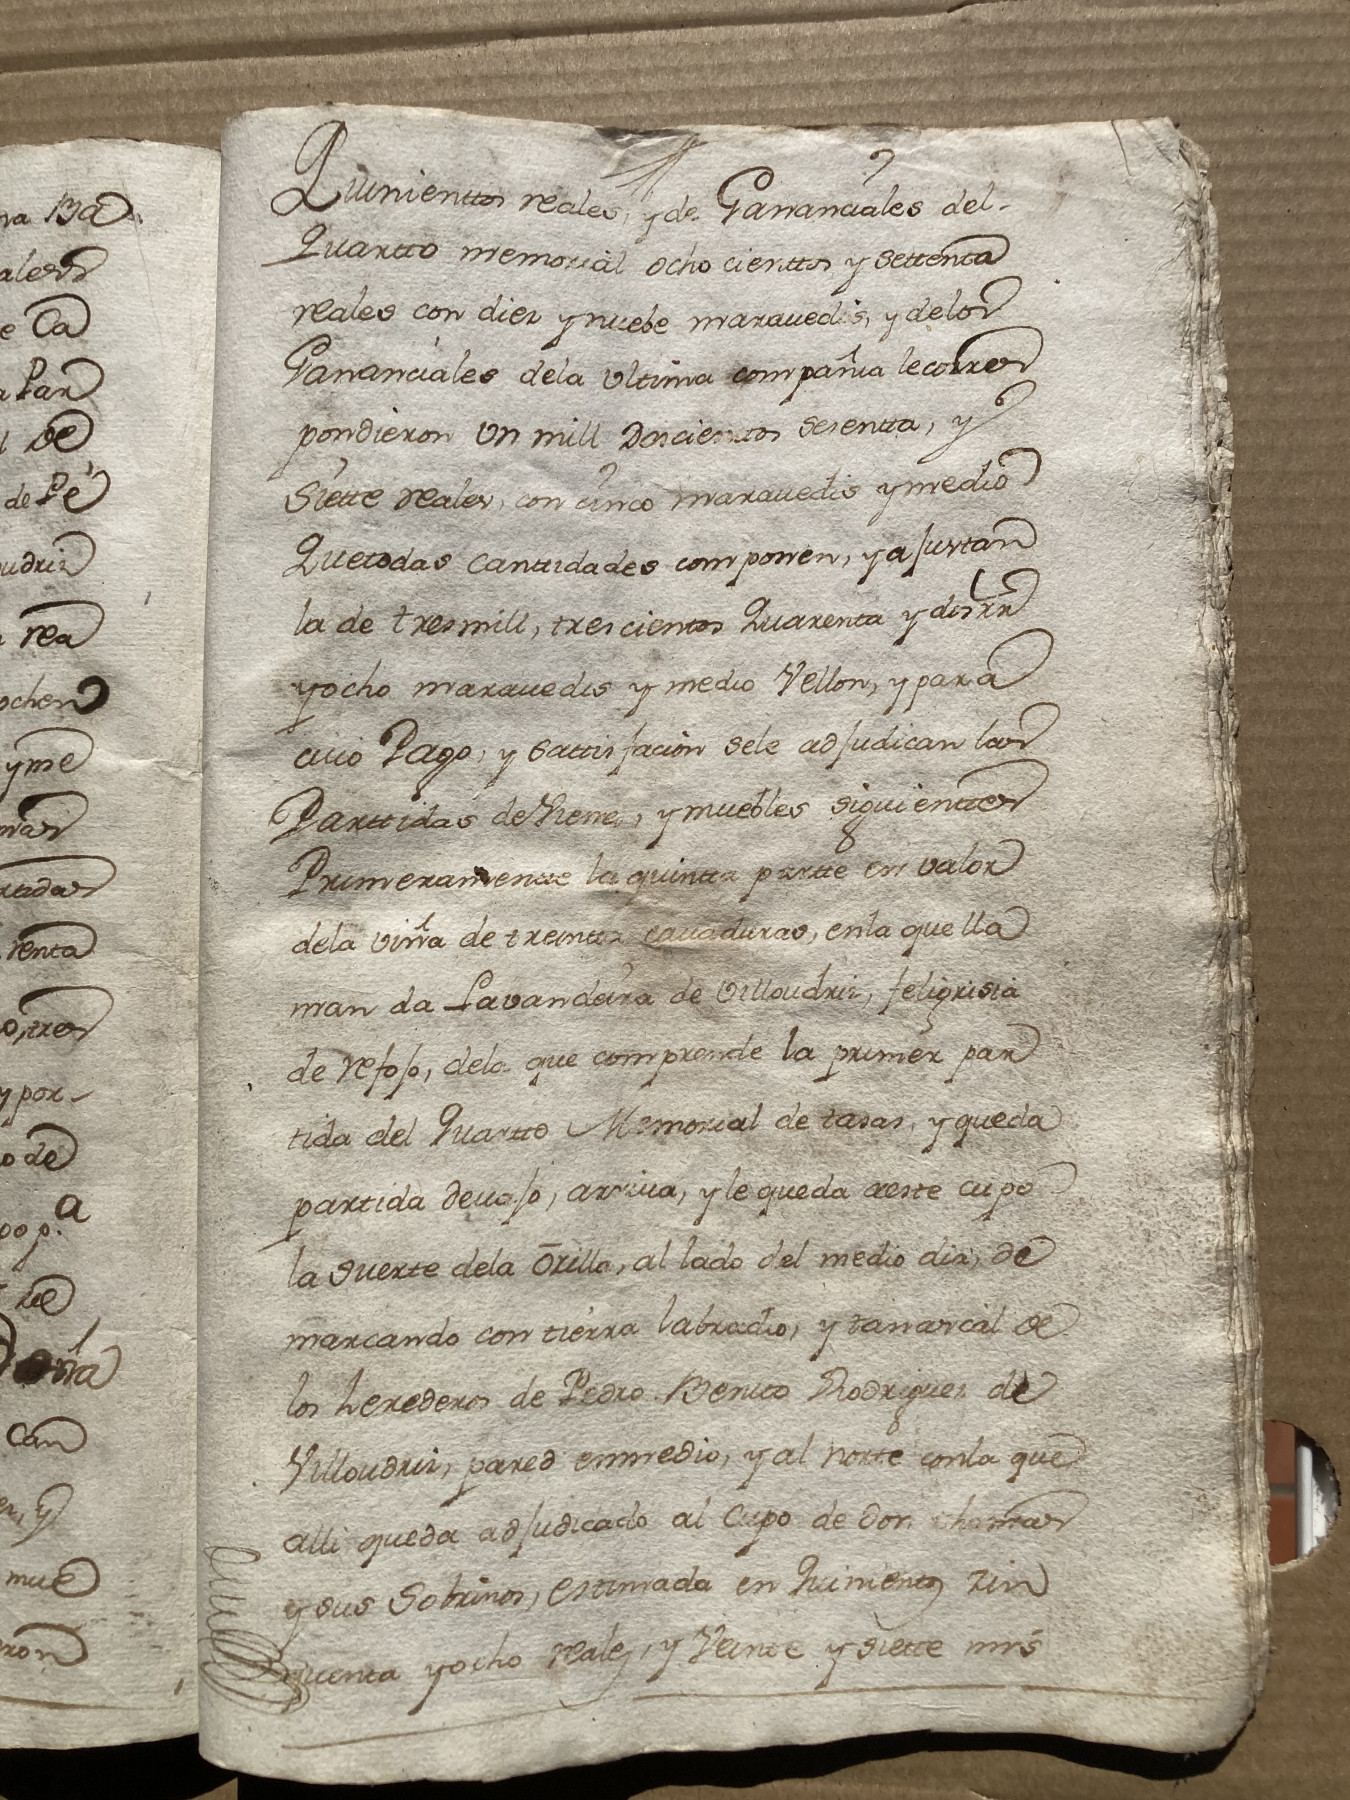 na Ba
ales
e Ca
a Par
l De
de Pe
oudriz
rea
ochen
y me
mas
rtidas
renta
o, tres
y por
o de
po p.a
De
Can
y
mue
ron
Quinienttos reales, y de Gananciales del
Quartto memorial ocho cienttos y settenta
reales con diez y nuebe marauedis, y delos
Gananciales dela vltima compañia lecorres
pondieron vn mill Doscientos sesentta, y
Siette reales, con cinco marauedis y medio
Quetodas Canttidades componen, y ajustan
la de tresmill, tres cientos Quarenta y dos rrs
yocho marauedis y medio Vellon, y para
cuio Pago, y Sattisfacion sele adjudican las
Parttidas de vienes, y muebles siguienttes
Primeramentte la quintta partte en valor
dela viña de treintta cauaduras, enla que lla
man da Lavandeira de Villoudriz, feligrisia
de refojo, dela que comprende la primer par
tida del Quartto Memorial de tasas, y queda
partida deuajo, arriua, y le queda a este cupo
la Suerte dela Orilla, al lado del medio dia, de
marcando con tierra labradio, y tanarcal de
los herederos de Pedro Benito Rodriguez de
Villoudriz, pared enmedio, y al norte conla que
alli queda adjudicado al Cupo de don thomas
y sus Sobrinos, estimada en Quinientos zin
quenta yocho reales, y Veinte y siette mrs